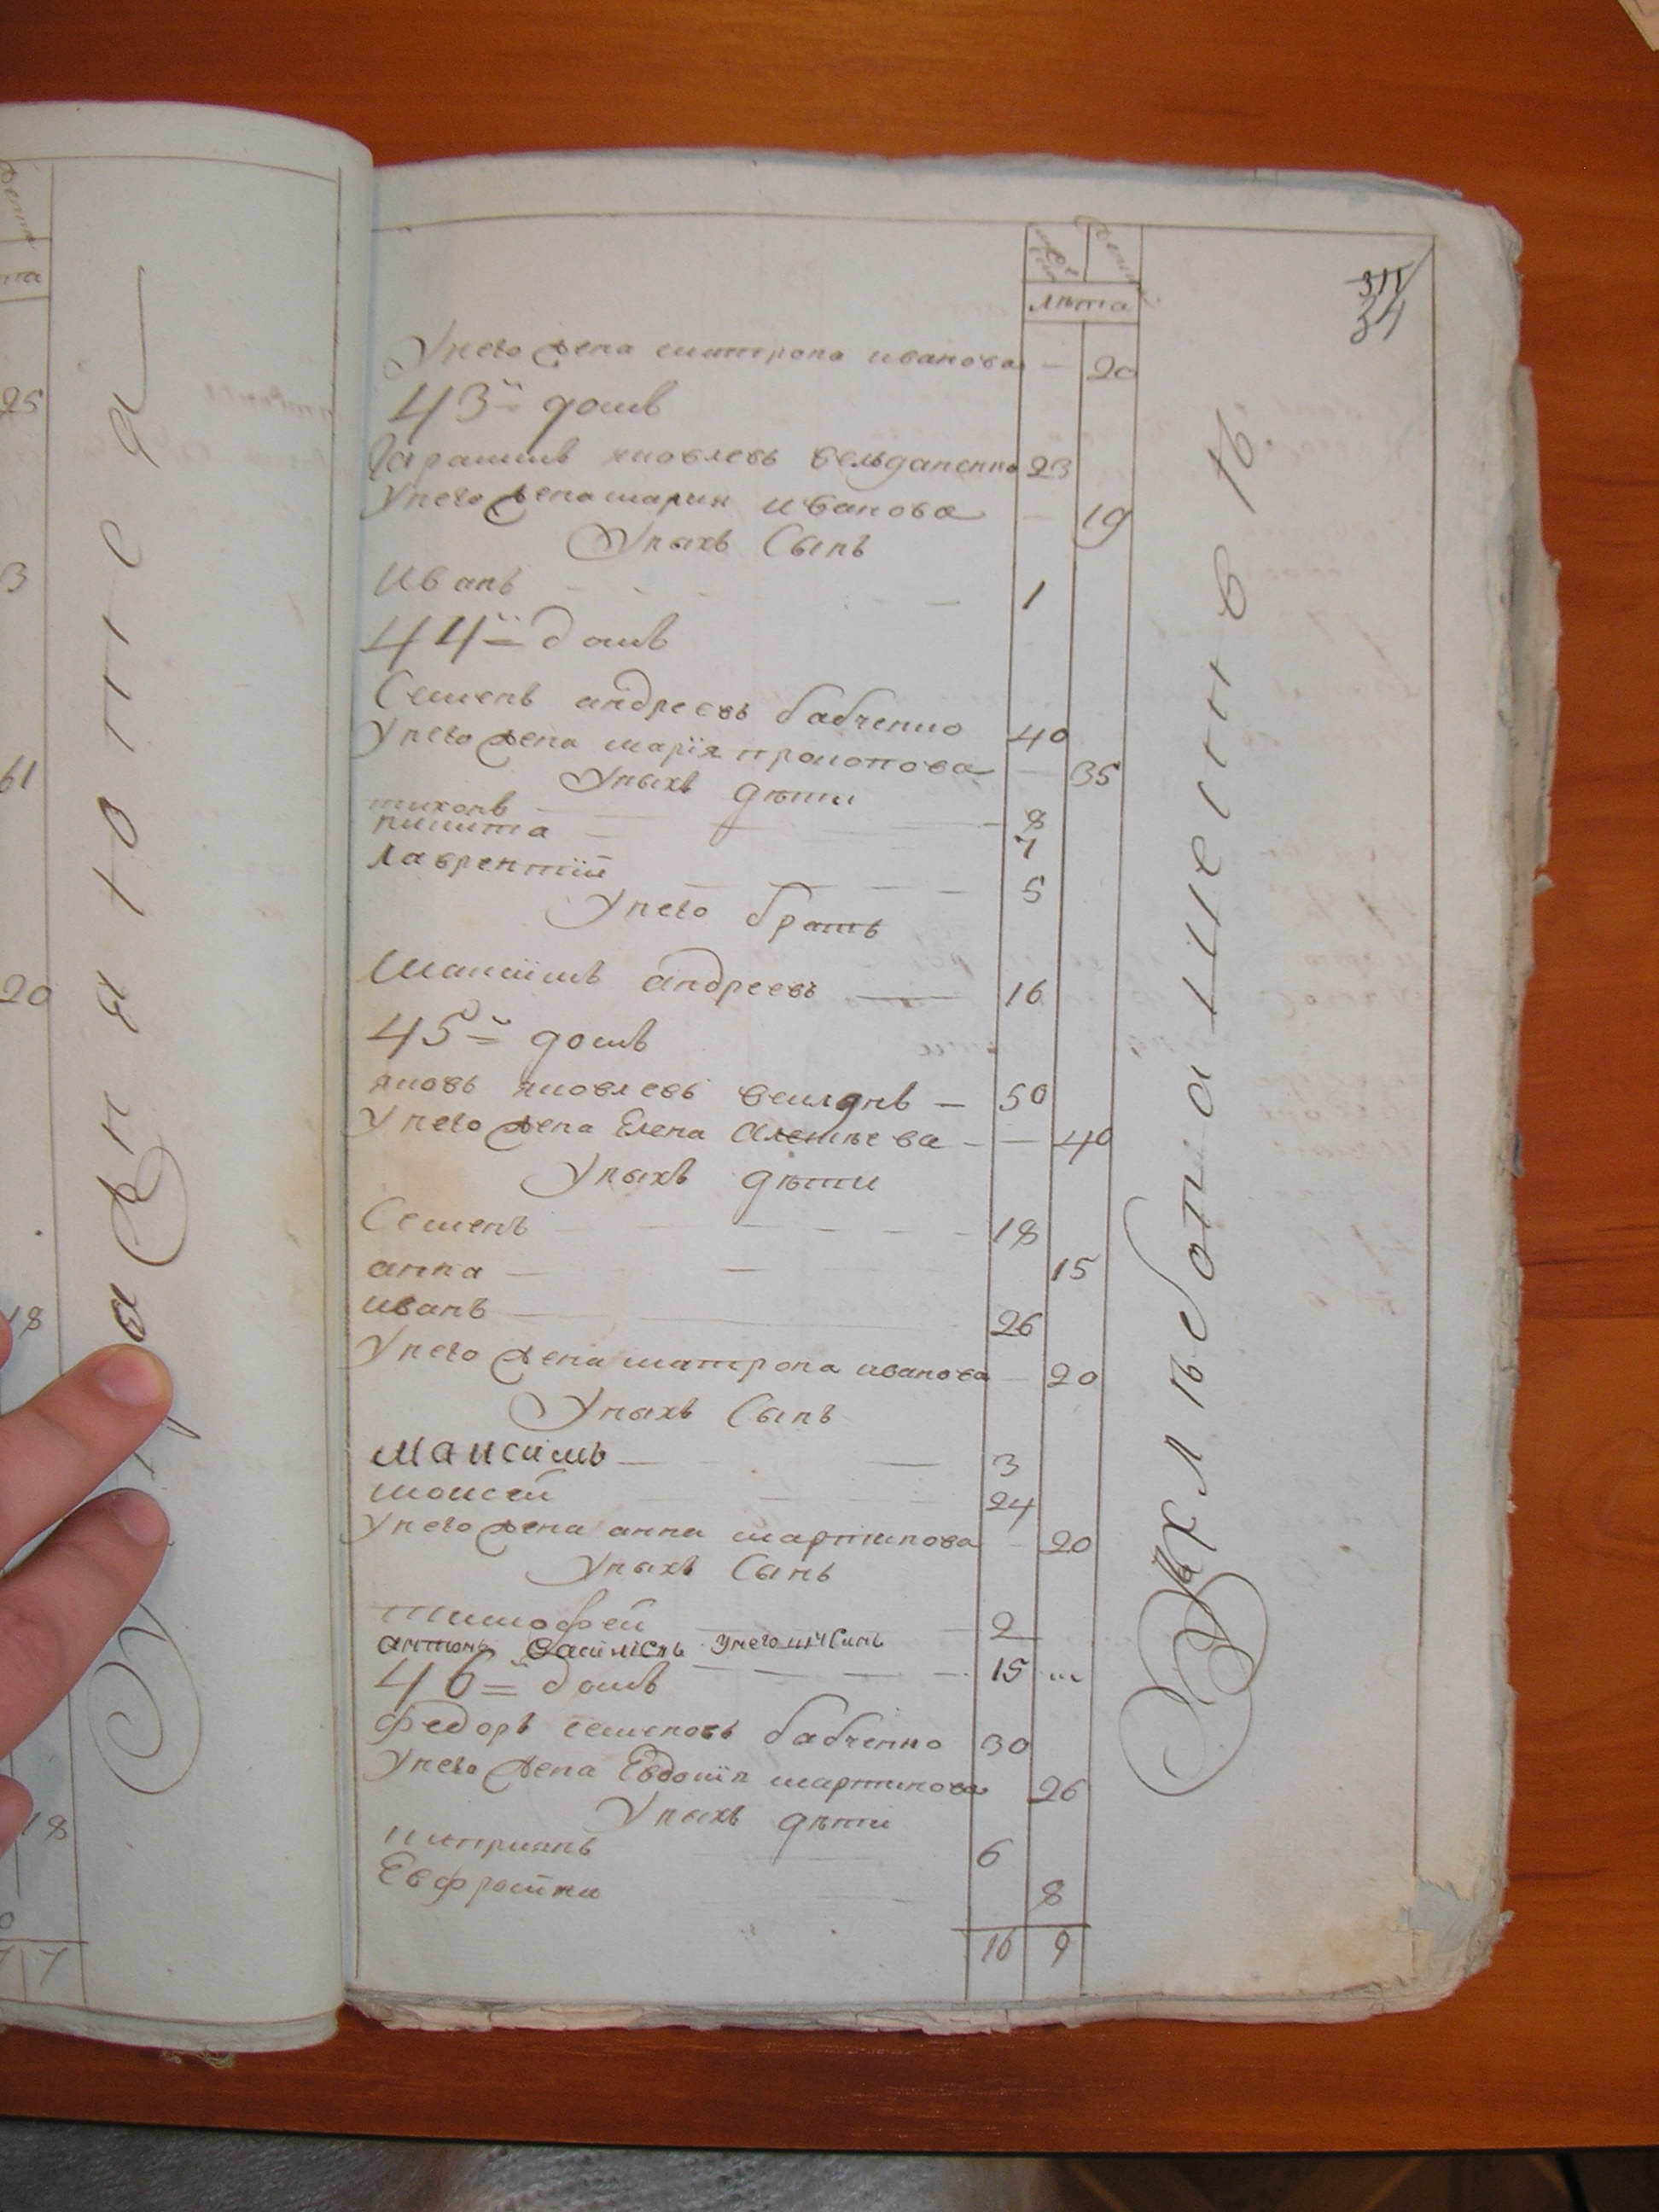 25
3
61
20
18
18
лѣта
34
У него жена матрона иванова — 20
43й домъ
Гарасимъ яковлевъ велданенко 23
У него жена мария иванова — 19
У ныхъ Сынъ
Иванъ — 1
44й домъ
Семенъ андреевъ бабченко 40
У него жена марїя прокопова — 35
У ныхъ дѣти
тихонъ — 8
никита — 7
Лаврентїй — 5
У него братъ
Макси́мъ андреевъ — 16
45й домъ
яковъ яковлевъ — 50
У него жена Елена Алексѣева — 40
У ныхъ дѣти
Семенъ — 18
анна — 15
иванъ — 26
У него жена матрона иванова — 20
У ныхъ Сынъ
Максимъ — 3
моисей — 24
У него жена анна мартинова — 20
У ныхъ Сынъ
Тимофей — 2
антонъ У него Синъ — 15
46й домъ
федоръ семеновъ бабченко 30
У него жена Евдокїя мартинова 26
У ныхъ дѣти
киприянъ 6
Евфросина 8
16 9
У хлѣбопашествѣ